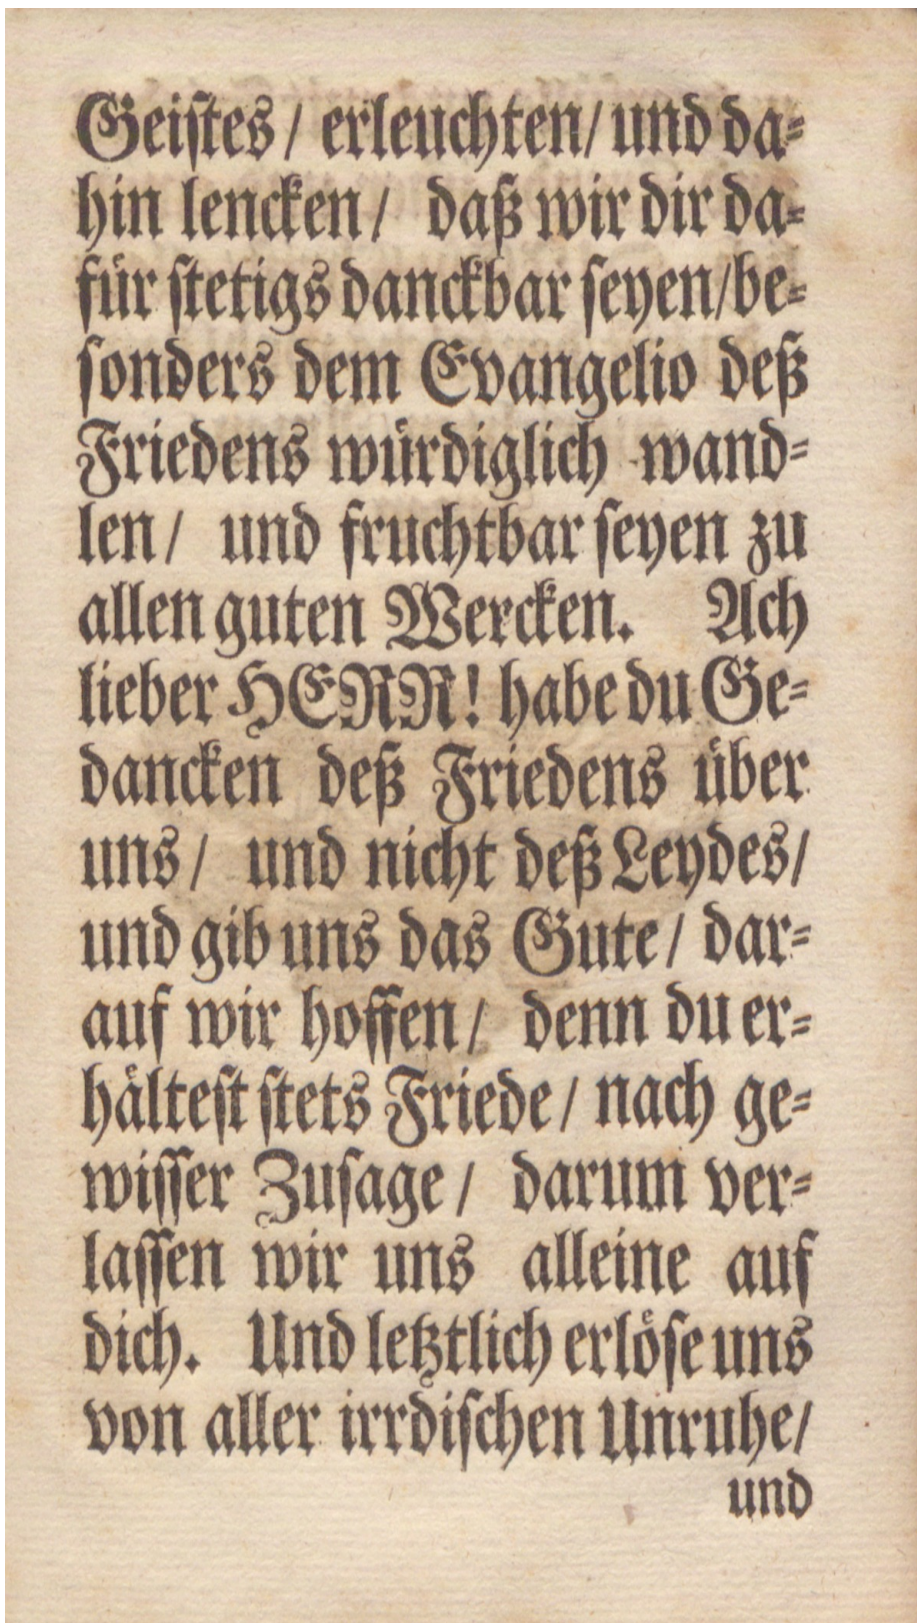 Geiſtes / erleuchten / und da⸗
hin lencken / daß wir dir da⸗
für ſtetigs danckbar ſeyen / be⸗
ſonders dem Evangelio deß
Friedens würdiglich wand⸗
len / und fruchtbar ſeyen zu
allen guten Wercken. Ach
lieber HERR! habe du Ge⸗
dancken deß Friedens über
uns / und nicht deß Leydes /
und gib uns das Gute / dar⸗
auf wir hoffen / denn du er⸗
hälteſt ſtets Friede / nach ge⸗
wiſſer Zuſage / darum ver⸗
laſſen wir uns alleine auf
dich. Und letztlich erlöſe uns
von aller irrdiſchen Unruhe /
und